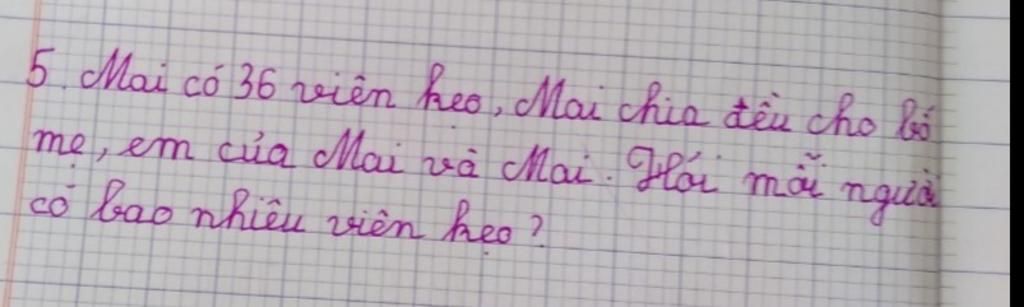 5. Mai có 36 viên kẹo, Mai chia đều cho bố
mẹ, em của Mai và Mai. Hỏi mỗi người
có bao nhiêu viên kẹo?